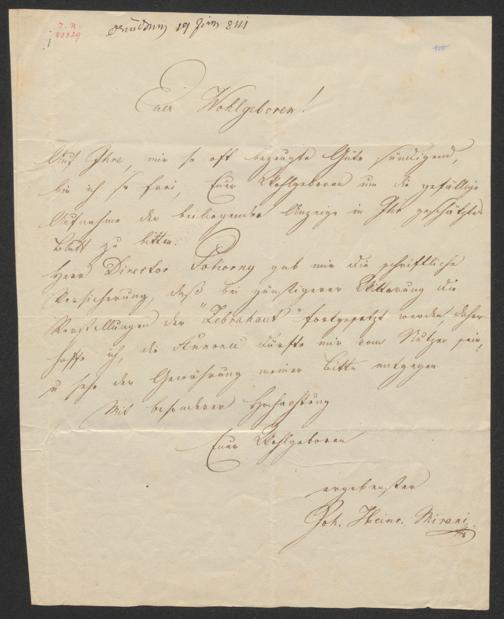 I. N.
Euer Wohlgeboren!
Auf Ihre, mir so oft bezeugte Güte sündigend,
bin ich so frei, Euer Wohlgeboren um die gefällige
Aufnahme der beiliegenden Anzeige in Ihr geschätztes
Blatt zu bitten.
Herr Director Pokorny gab mir die schriftliche
Versicherung, daß bei günstigerer Witterung die
Vorstellungen der "Zebrahaut" fortgesetzt werden, daher
hoffe ich, die Annonce dürfte mir von Nutzen sein,
u sehe der Gewährung meiner Bitte entgegen.
Mit besonderer Hochachtung
Euer Wohlgeboren
ergebenster
Joh. Heinr. Mirani